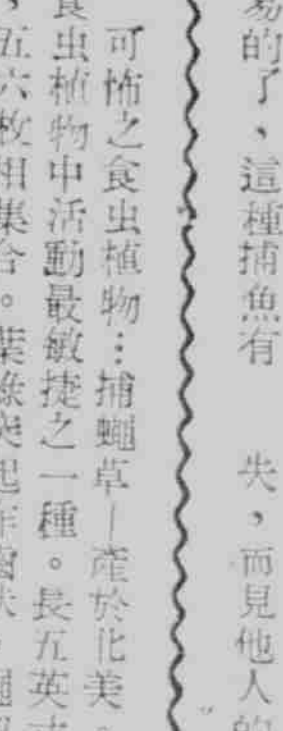 易的了、這種捕魚有 失，而見他人的
可怖之食虫植物…捕蠅草—產於化美
食虫植物中活動最敏捷之一種。長五英
，五六枚相集合。葉緣突起作齒狀，蠅